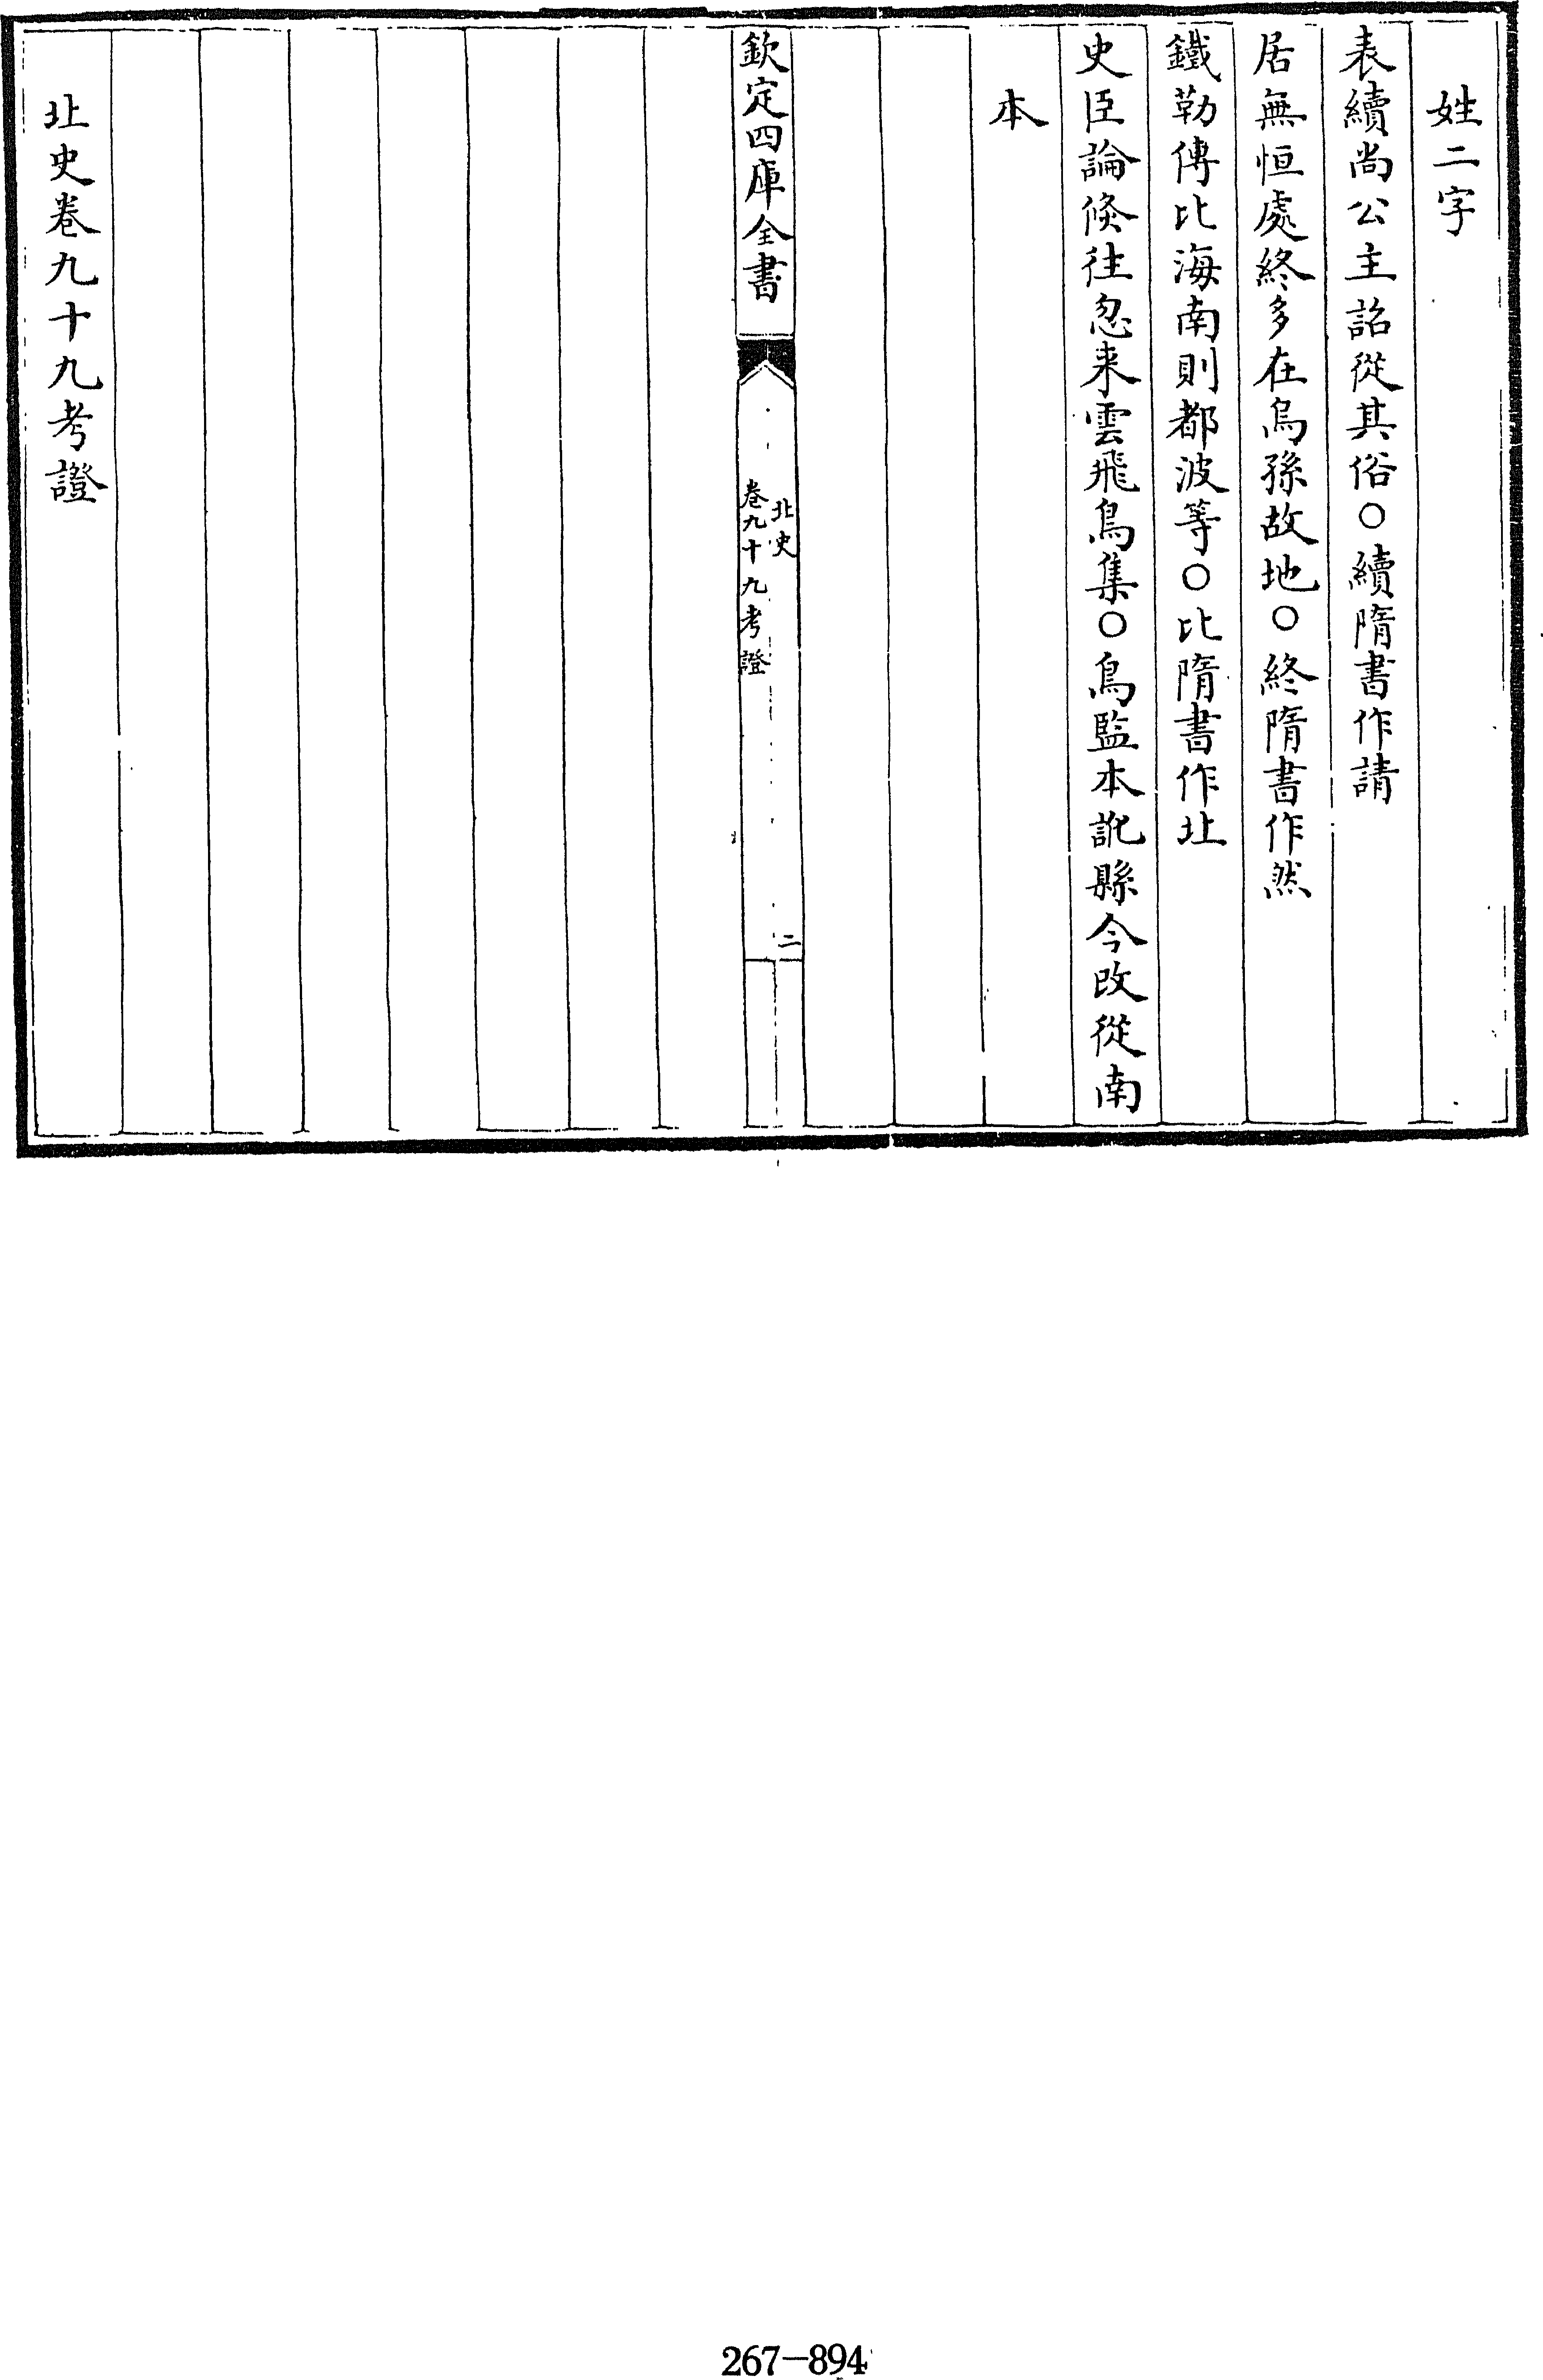 姓二字
表續尚公主詔從其俗○續隋書作請
居無恒處終多在烏孫故地○終隋書作然
鐵勒傳比海南則都波等○比隋書作北
史臣論倐往忽来雲飛鳥集○鳥監本訛縣今改從南
本
欽定四庫全書
北史
卷九十九考證
二
北史卷九十九考證
267-894